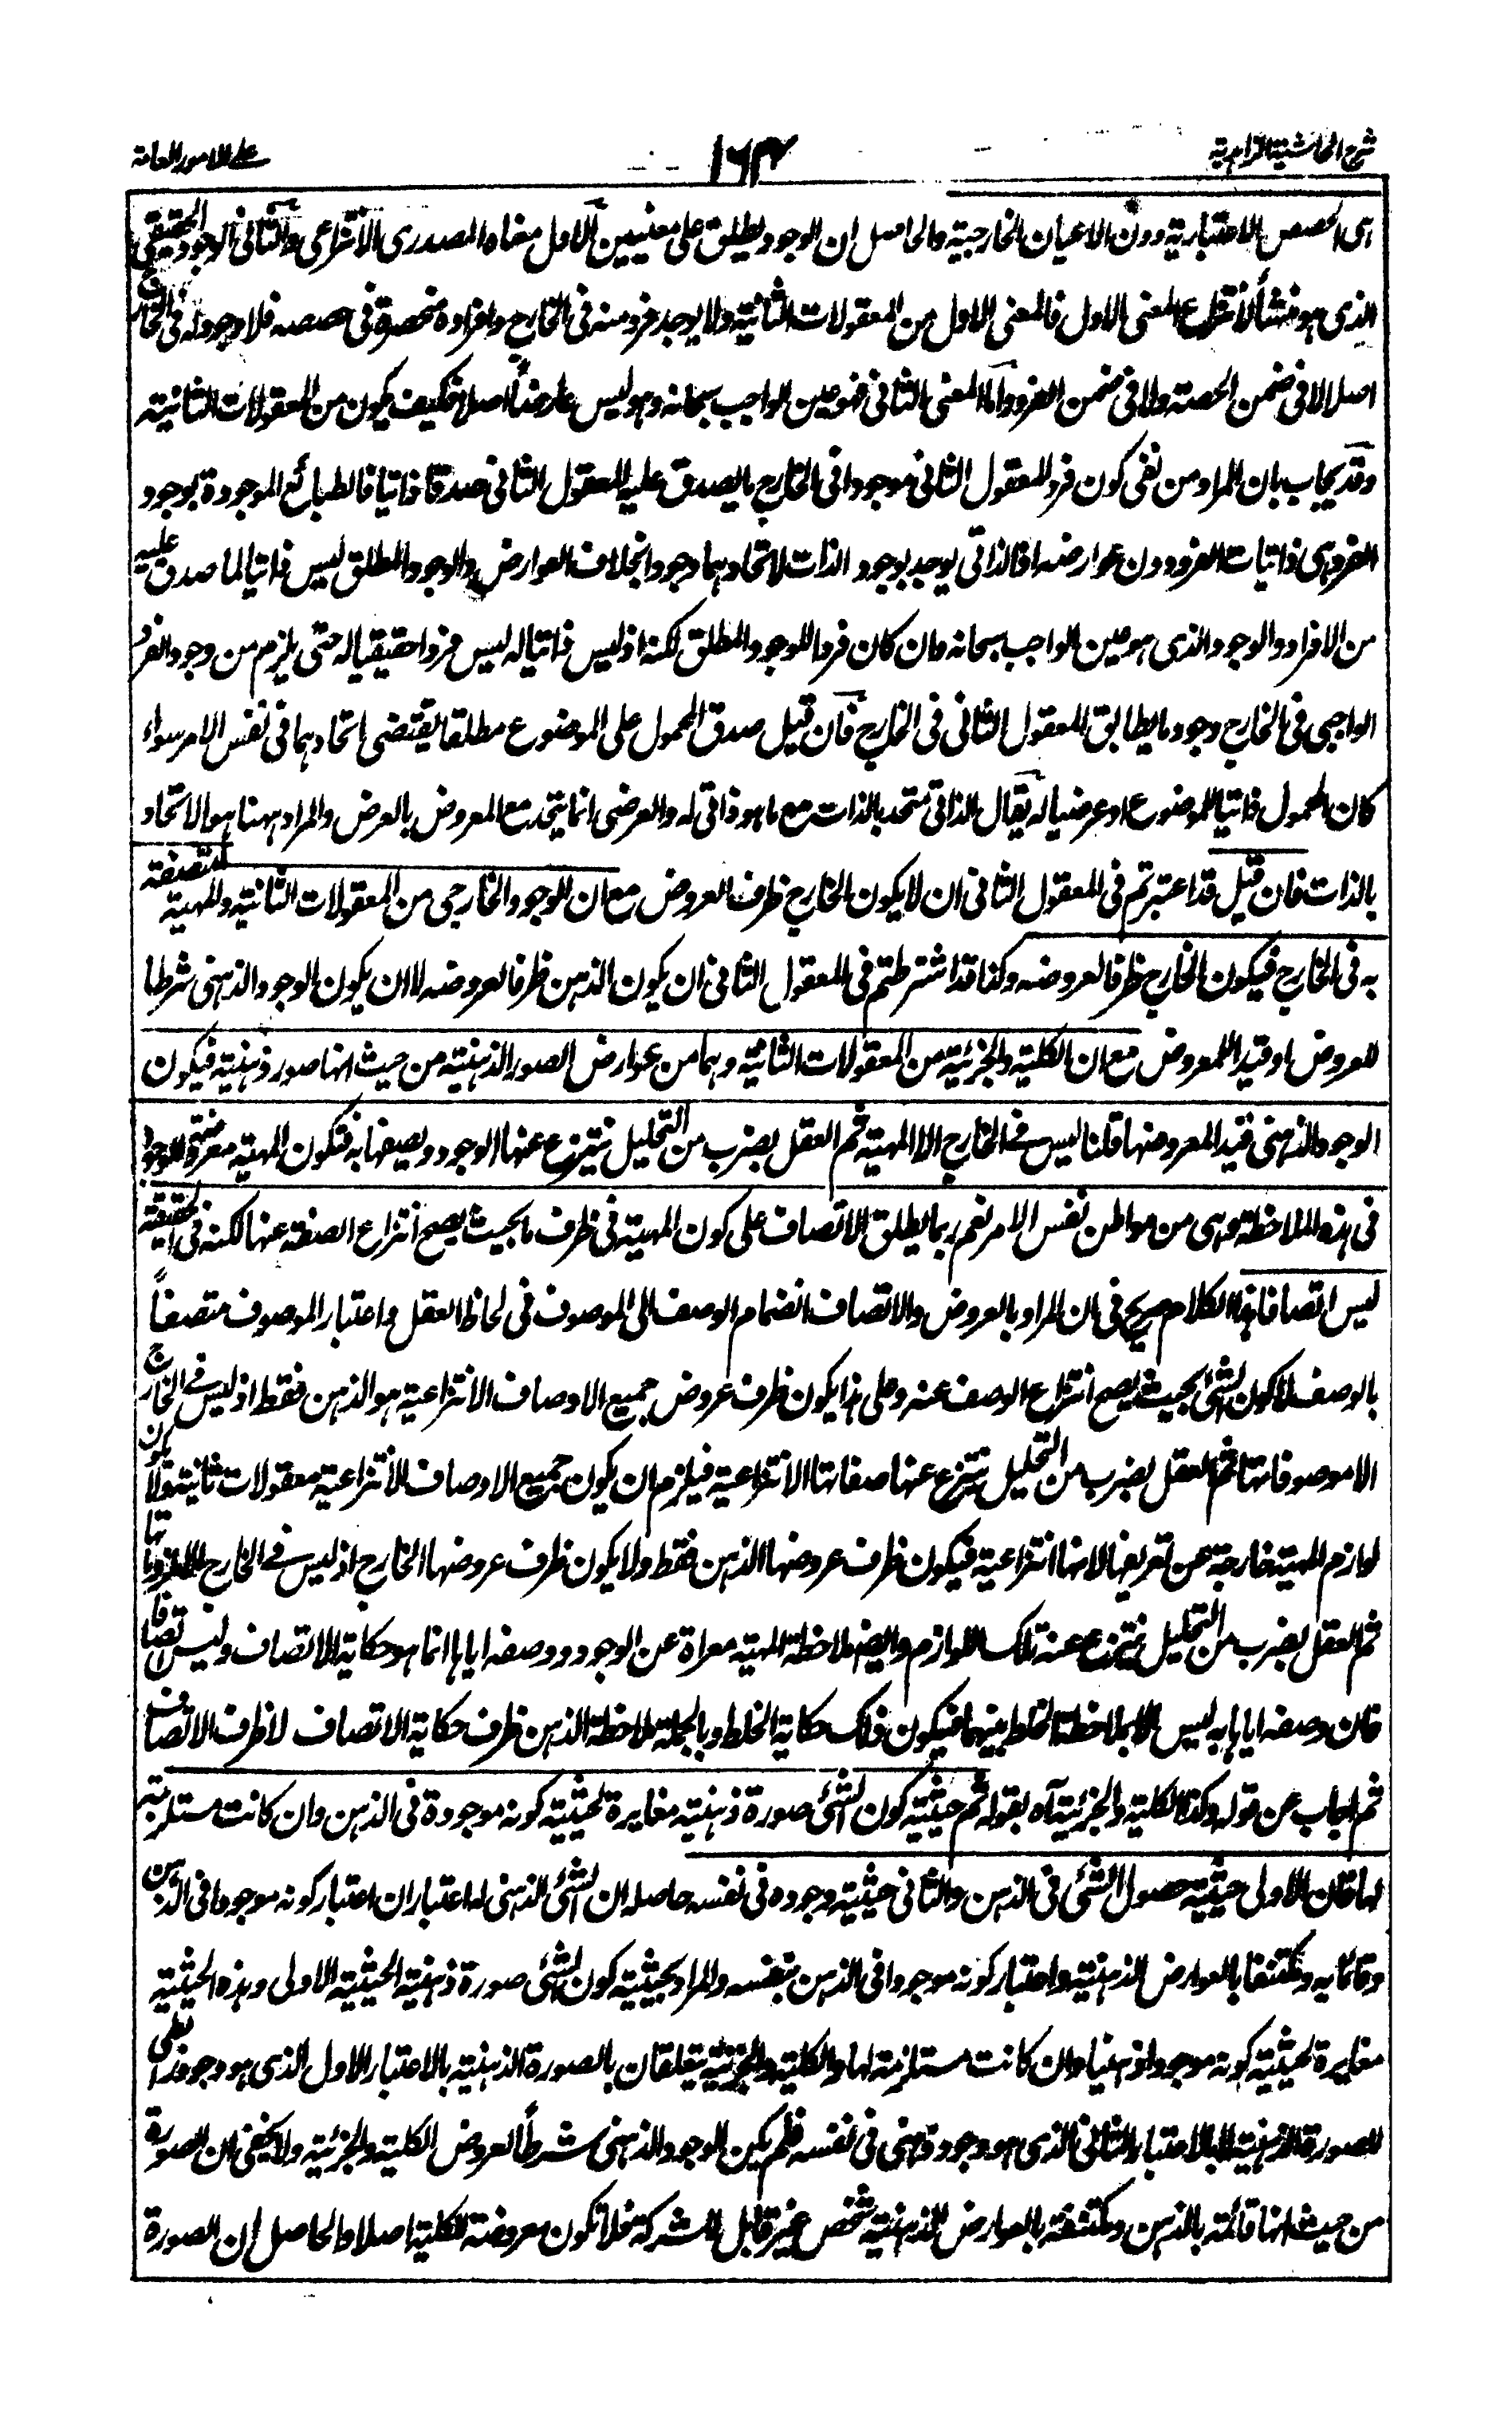 شرح الحاشية الزاهدية
۱۶۳
على الامور العامة
اى الحصص الاعتبارية دون الاعيان الخارجية والحاصل ان الوجود يطلق على معنيين الاول معناه المصدرى الانتزاعى والثانى الوجود الحقيقى
الذى هو منشأ لانتزاع المعنى الاول فالمعنى الاول من المعقولات الثانية ولا يوجد فرد منه فى الخارج وافراده منحصرة فى حصصه فلا وجود له فى الخارج
اصلا لا فى ضمن الحصة ولا فى ضمن الفرد واما المعنى الثانى فهو عين الواجب سبحانه وهو ليس عارضا اصلا فكيف يكون من المعقولات الثانية
وقد يجاب بان المراد من نفى كون فرد المعقول الثانى موجودا فى الخارج ما يصدق عليه المعقول الثانى صدقا ذاتيا فالطبائع الموجودة بوجود
الفرد هى ذاتيات الفرد دون عوارضه اذ الذاتى يوجد بوجود الذات لاتحادهما وجودا بخلاف العوارض والوجود المطلق ليس ذاتيا لما صدق عليه
من الافراد والوجود الذى هو عين الواجب سبحانه وان كان فردا للوجود المطلق لكنه اذ ليس ذاتيا له ليس فردا حقيقيا له حتى يلزم من وجود الفرد
الواجبى فى الخارج وجود ما يطابق المعقول الثانى فى الخارج فان قيل صدق المحمول على الموضوع مطلقا يقتضى اتحادهما فى نفس الامر سواء
كان المحمول ذاتيا للموضوع او عرضيا له يقال الذاتى متحد بالذات مع ما هو ذاتى له والعرضى انما يتحد مع المعروض بالعرض والمراد ههنا هو الاتحاد
بالذات فان قيل قد اعتبرتم فى المعقول الثانى ان لا يكون الخارج ظرف العروض مع ان الوجود الخارجى من المعقولات الثانية والمهية المتصفة
به فى الخارج فيكون الخارج ظرفا لعروضه وكذا قد اشترطتم فى المعقول الثانى ان يكون الذهن ظرفا لعروضه لا ان يكون الوجود الذهنى شرطا
للعروض او قيدا للمعروض مع ان الكلية والجزئية من المعقولات الثانية وهما من عوارض الصور الذهنية من حيث انها صور ذهنية فيكون
الوجود الذهنى قيدا لمعروضها قلنا ليس فى الخارج الا المهية ثم العقل بضرب من التحليل ينتزع عنها الوجود ويصفها به فتكون المهية معروضة للوجود
فى هذه الملاحظة وهى من مواطن نفس الامر نعم ربما يطلق الاتصاف على كون المهية فى ظرف ما بحيث يصح انتزاع الصفة عنها لكنه فى الحقيقة
ليس اتصافا هذا الكلام صريح فى ان المراد بالعروض والاتصاف انضمام الوصف الى الموصوف فى لحاظ العقل واعتبار الموصوف متصفاً
بالوصف لا كون الشئ بحيث يصح انتزاع الوصف عنه وعلى هذا يكون ظرف عروض جميع الاوصاف الانتزاعية هو الذهن فقط اذ ليس فى الخارج
الا موصوفاتها ثم العقل بضرب من التحليل ينتزع عنها صفاتها الانتزاعية فيلزم ان يكون جميع الاوصاف الانتزاعية معقولات ثانية ولا يكون
لوازم المهية خارجة عن تعريفها لانها انتزاعية فيكون ظرف عروضها الذهن فقط ولا يكون ظرف عروضها الخارج اذ ليس فى الخارج الا ملزوماتها
ثم العقل بضرب من التحليل ينتزع عنه تلك اللوازم وايضا ملاحظة المهية معراة عن الوجود ووصفه اياها انما هو حكاية الاتصاف وليس اتصافا
فان وصفه اياها به ليس الا بملاحظة الخلط بينهما فيكون ذلك حكاية الخلط وبالجملة ملاحظة الذهن ظرف حكاية الاتصاف لا ظرف الاتصاف
ثم اجاب عن قوله وكذا الكلية والجزئية آه بقوله ثم حيثية كون الشئ صورة ذهنية مغايرة لحيثية كونه موجودة فى الذهن وان كانت مستلزمة
لها فان الاولى حيثية حصول الشئ فى الذهن والثانى حيثية وجوده فى نفسه حاصله ان الشئ الذهنى له اعتباران اعتبار كونه موجودا فى الذهن
وقائما به ومكتنفا بالعوارض الذهنية واعتبار كونه موجودا فى الذهن بنفسه والمراد بحيثية كون الشئ صورة ذهنية الحيثية الاولى وهذه الحيثية
مغايرة لحيثية كونه موجودا ذهنيا وان كانت مستلزمة لها والكلية والجزئية يتعلقان بالصورة الذهنية بالاعتبار الاول الذى هو وجود رابطى
للصورة الذهنية لا بالاعتبار الثانى الذى هو وجود ذهنى فى نفسه فلم يكن الوجود الذهنى شرطاً لعروض الكلية والجزئية ولا يخفى ان الصورة
من حيث انها قائمة بالذهن ومكتنفة بالعوارض الذهنية شخص غير قابل للشركة فلا تكون معروضة للكلية اصلا والحاصل ان الصورة